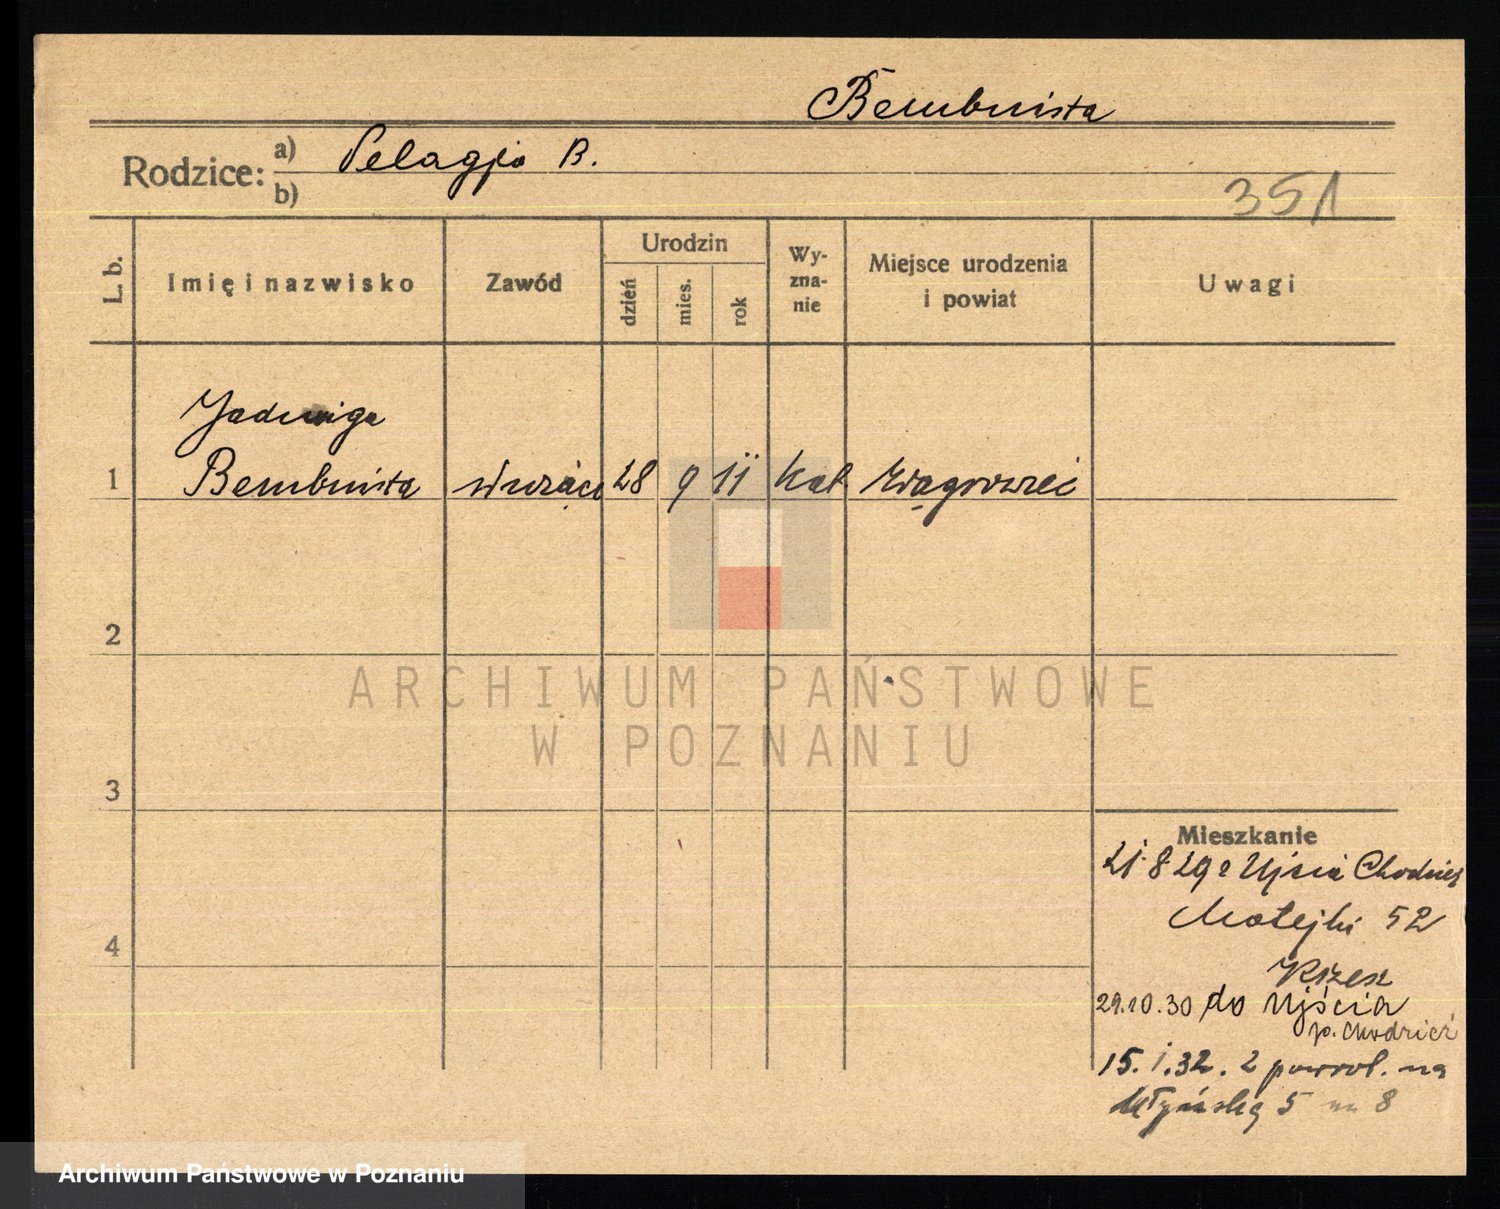 Bembnista
Rodzice: a) Pelagja B.
b)
351
L. b. Imię i nazwisko Zawód Urodzin dzień mies. rok Wy-zna-nie Miejsce urodzenia i powiat Uwagi
Jadwiga
1 Bembnista służąca 28 9 11 kat Wągrowiec
2
ARCHIWUM PAŃSTWOWE
W POZNANIU
3
Mieszkanie
21.8.29 z Ujścia Chodzież
Matejki 52
4
29.10.30 do Ujścia
p. Chodzież
15.1.32. z powrot. na
Młyńską 5 m 8
Archiwum Państwowe w Poznaniu